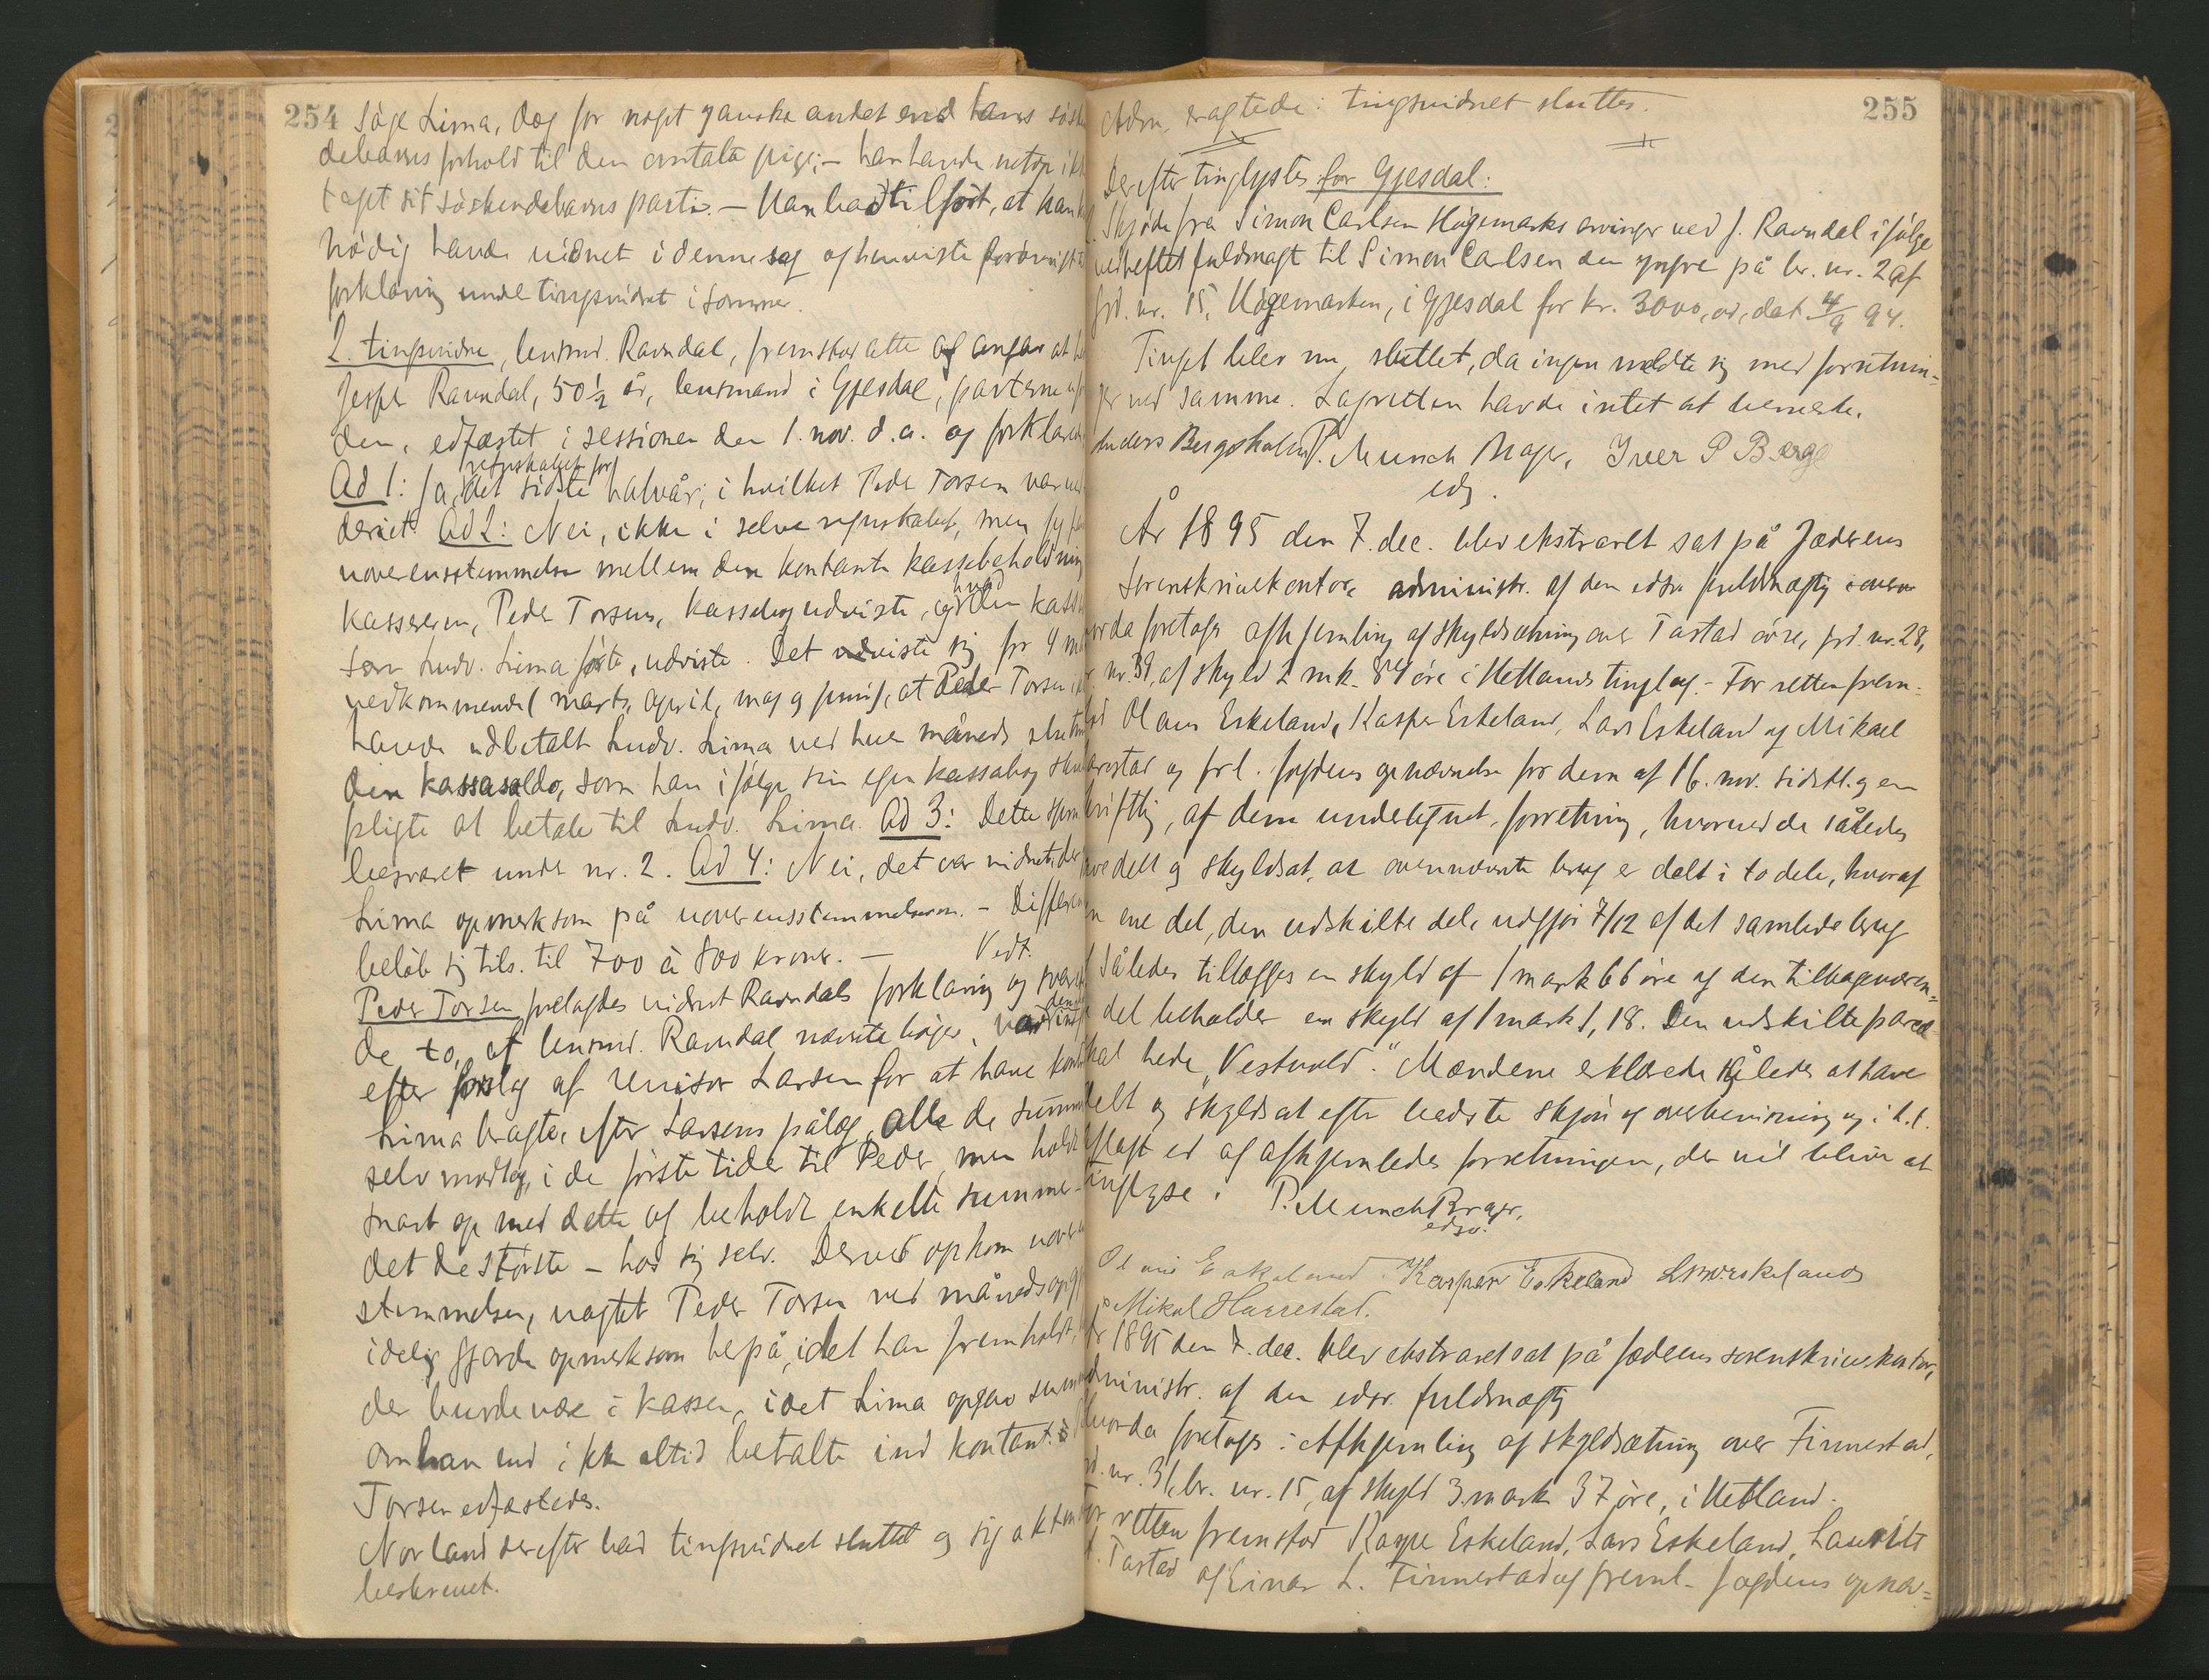 254
Søge Lima, dog for noget ganske andet end hans søsken
debarns forhold til den omtalte pige; – han havde netop ikke
taget sit søskendebarns parti. – Han bad tilført, at han
nødig havde vidnet i denne sag og henviste forøvrigt
forklaring under tingsvidnet i sommer.
2. tingsvidne, lensmd. Ravndal, fremstod atter og angav at
Jesper Ravndal, 50½ år, lensmand i Gjesdal, parterne
den, edfæstet i sessionen den 1. nov. d.a. og forklarede
regnskabet for
Ad 1: Ja, det sidste halvår, i hvilket Peder Torsen var
deriet. Ad 2: Nei, ikke i selve regnskabet, men
uoverensstemmelse mellem den kontante kassebeholdning
hvad
kassereren, Peder Torsens, kassebog udviste, og den
som Ludv. Lima førte, udviste. Det udviste sig for 4
vedkommende (marts, april, maj og juni), at Peder Torsen
havde udbetalt Ludv. Lima ved hver måneds slutning
den kassasaldo, som han ifølge sin egen kassabog
pligte at betale til Ludv. Lima. Ad 3: Dette
besvaret under nr. 2. Ad 4: Nei, det var vidnet der
Lima opmerksom på uoverensstemmelserne. –
beløb sig tils. til 700 à 800 kroner. – Vedt.
Peder Torsen forelagdes vidnet Ravndals forklaring og
de to, af lensmd. Ravndal nævnte bøger, var
efter forslag af revisor Larsen for at have
Lima bragte, efter Larsens pålæg, alle de
selv modtog, i de første tider til Peder, men holdt
snart op med dette og beholdt enkelte summer –
det de største – hos sig selv. Derved opkom
stemmelsen, uagtet Peder Torsen ved
idelig gjorde opmerksom herpå, idet han fremholdt,
der burde være i kassen, idet Lima opgav
om han end ikke altid betalte ind kontant.
Torsen edfæstedes.
Norland derefter bad tingsvidnet sluttet og sig
beskrevet.
255
Adm. eragtede: tingsvidnet sluttes.
Derefter tinglystes for Gjesdal:
Skjøde fra Simon Carlsen Høgemarks arvinger ved J. Ravndal ifølge
vedheftet fuldmagt til Simon Carlsen den yngre på br. nr. 2 af
grd. nr. 15, Høgemarken, i Gjesdal for kr. 3000,00, dat. 4/9 94.
Tinget blev nu sluttet, da ingen meldte sig med forretnin=
ger ved samme. Lagretten havde intet at bemerke.
P. Munch Brager, Iver P Berge
edsv.
År 1895 den 7. dec. blev ekstraret sat på Jæderens
Sorenskriverkontor administr. af den edsv. fuldmægtig
hvorda foretoges afhjemling af skyldsætning over Tastad øvre, grd. nr. 28,
br. nr. 39, af skyld 2 mk. 84 øre i Hetlands tinglag. – For retten frem=
stod Olaus Eskeland, Kasper Eskeland, Lars Eskeland og Mikael
Harestad og frl. fogdens opnævnelse for dem af 16. nov. sidstl. og en
skriftlig, af dem underlignet, forretning, hvorved de således
have delt og skyldsat, at ovennævnte brug er delt i to dele, hvoraf
den ene del, den udskilte del, udgjør 7/12 af det samlede brug
og således tillægges en skyld af 1 mark 66 øre og den tilbageværen=
de del beholder en skyld af 1 mark 1,18. Den udskilte parcel
skal hede „Vestvold". Mændene erklærede således at have
delt og skyldsat efter bedste skjøn og overbevisning og i h.t.
aflagt ed og afhjemledes forretningen, der vil blive at
tinglyse. P. Munch Brager,
edsv.
Olaus Eskeland. Kasper Eskeland Lars Eskeland
Mikal Harrestad.
År 1895 den 7. dec. blev ekstraret sat på Jæderens sorenskriverkontor,
administr. af den edsv. fuldmægtig
Hvorda foretoges: Afhjemling af skyldsætning over Finnestad,
grd. nr. 31, br. nr. 15, af skyld 3 mark 37 øre, i Hetland.
For retten fremstod Kaspe Eskeland, Lars Eskeland, Laurits
Tastad og Einar L. Finnestad og freml. fogdens opnæv=